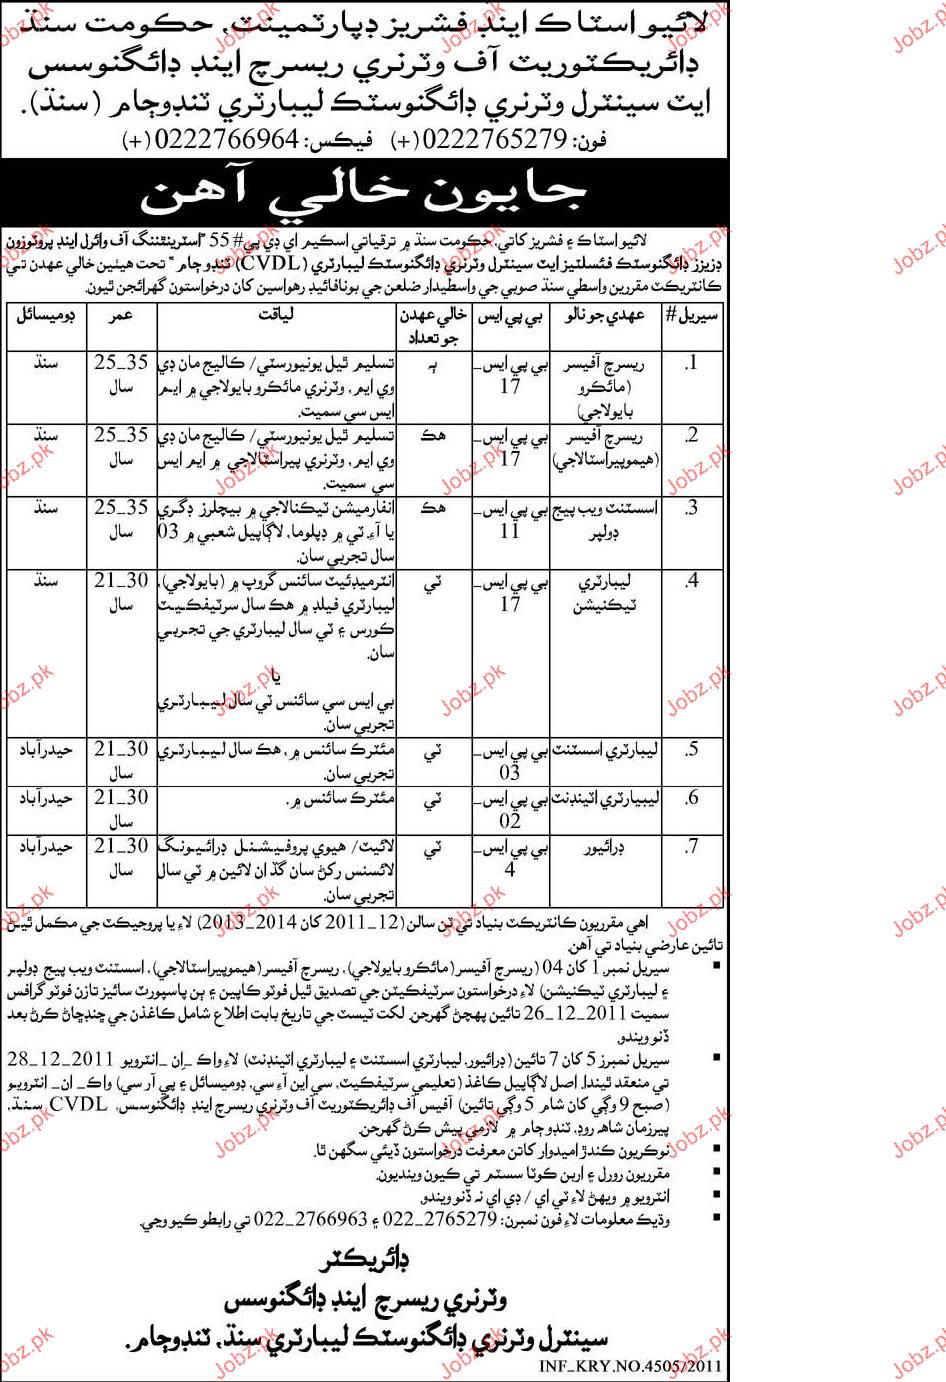 لائيو اسٽاڪ اينڊ فشريز ڊپارٽمينٽ، حڪومت سنڌ
ڊائريڪٽوريٽ آف وٽرنري ريسرچ اينڊ ڊائگنوسس
ايٽ سينٽرل وٽرنري ڊائگنوسٽڪ ليبارٽري ٽنڊوڄام (سنڌ).
فون: 0222765279(+) فيڪس: 0222766964(+)
جايون خالي آهن
لائيو اسٽاڪ ۽ فشريز کاتي، حڪومت سنڌ ۾ ترقياتي اسڪيم اي ڊي پي# 55 "اسٽرينٿننگ آف وائرل اينڊ پروٽوزون
ڊزيزز ڊائگنوسٽڪ فئسلٽيز ايٽ سينٽرل وٽرنري ڊائگنوسٽڪ ليبارٽري (CVDL) ٽنڊوڄام" تحت هيٺين خالي عهدن تي
ڪانٽريڪٽ مقررين واسطي سنڌ صوبي جي واسطيدار ضلعن جي بونافائيڊ رهواسين کان درخواستون گهرائجن ٿيون.
سيريل# عهدي جو نالو بي پي ايس خالي عهدن جو تعداد لياقت عمر ڊوميسائل
1. ريسرچ آفيسر (مائڪرو بايولاجي) بي پي ايس_ 17 ٻه تسليم ٿيل يونيورسٽي/ ڪاليج مان ڊي وي ايم، وٽرنري مائڪرو بايولاجي ۾ ايم ايس سي سميت. 25_35 سال سنڌ
2. ريسرچ آفيسر (هيموپيراسٽالاجي) بي پي ايس_ 17 هڪ تسليم ٿيل يونيورسٽي/ ڪاليج مان ڊي وي ايم، وٽرنري پيراسٽالاجي ۾ ايم ايس سي سميت. 25_35 سال سنڌ
3. اسسٽنٽ ويب پيج ڊولپر بي پي ايس_ 11 هڪ انفارميشن ٽيڪنالاجي ۾ بيچلرز ڊگري يا آءِ ٽي ۾ ڊپلوما، لاڳاپيل شعبي ۾ 03 سال تجربي سان. 25_35 سال سنڌ
4. ليبارٽري ٽيڪنيشن بي پي ايس_ 17 ٽي انٽرميڊئيٽ سائنس گروپ ۾ (بايولاجي)، ليبارٽري فيلڊ ۾ هڪ سال سرٽيفڪيٽ ڪورس ۽ ٽي سال ليبارٽري جي تجربي سان. يا بي ايس سي سائنس ٽي سال ليبارٽري تجربي سان. 21_30 سال سنڌ
5. ليبارٽري اسسٽنٽ بي پي ايس_ 03 ٽي مئٽرڪ سائنس ۾، هڪ سال ليبارٽري تجربي سان. 21_30 سال حيدرآباد
6. ليبيارٽري اٽينڊنٽ بي پي ايس_ 02 ٽي مئٽرڪ سائنس ۾. 21_30 سال حيدرآباد
7. ڊرائيور بي پي ايس_ 4 ٽي لائيٽ/ هيوي پروفيشنل ڊرائيونگ لائسنس رکڻ سان گڏ ان لائين ۾ ٽي سال تجربي سان. 21_30 سال حيدرآباد
اهي مقرريون ڪانٽريڪٽ بنياد تي ٽن سالن (12_2011 کان 2014_2013) لاءِ يا پروجيڪٽ جي مڪمل ٿيڻ
تائين عارضي بنياد تي آهن.
سيريل نمبر 1 کان 04 (ريسرچ آفيسر (مائڪرو بايولاجي)، ريسرچ آفيسر (هيموپيراسٽالاجي)، اسسٽنٽ ويب پيج ڊولپر
۽ ليبارٽري ٽيڪنيشن) لاءِ درخواستون سرٽيفڪيٽن جي تصديق ٿيل فوٽو ڪاپين ۽ ٻن پاسپورٽ سائيز تازن فوٽو گرافس
سميت 2011_12_26 تائين پهچڻ گهرجن. لکت ٽيسٽ جي تاريخ بابت اطلاع شامل ڪاغذن جي ڇنڊڇاڻ ڪرڻ بعد
ڏنو ويندو.
سيريل نمبرز 5 کان 7 تائين (ڊرائيور، ليبارٽري اسسٽنٽ ۽ ليبارٽري اٽينڊنٽ) لاءِ واڪ_اِن_ انٽرويو 2011_12_28
تي منعقد ٿيندا. اصل لاڳاپيل ڪاغذ (تعليمي سرٽيفڪيٽ، سي اين آءِ سي، ڊوميسائل ۽ پي آر سي) واڪ_ ان_ انٽرويو
(صبح 9 وڳي کان شام 5 وڳي تائين) آفيس آف ڊائريڪٽوريٽ آف وٽرنري ريسرچ اينڊ ڊائگنوسس، CVDL سنڌ،
پيرزمان شاهه روڊ، ٽنڊوڄام ۾ لازمي پيش ڪرڻ گهرجن.
نوڪريون ڪندڙ اميدوار کاتن معرفت درخواستون ڏيئي سگهن ٿا.
مقرريون رورل ۽ اربن ڪوٽا سسٽم تي ڪيون وينديون.
انٽرويو ۾ ويهڻ لاءِ ٽي اي / ڊي اي نه ڏنو ويندو.
وڌيڪ معلومات لاءِ فون نمبرن: 2765279_022 ۽ 2766963_022 تي رابطو ڪيو وڃي.
ڊائريڪٽر
وٽرنري ريسرچ اينڊ ڊائگنوسس
سينٽرل وٽرنري ڊائگنوسٽڪ ليبارٽري سنڌ، ٽنڊوڄام.
INF_KRY.NO.4505/2011
Jobz.pk